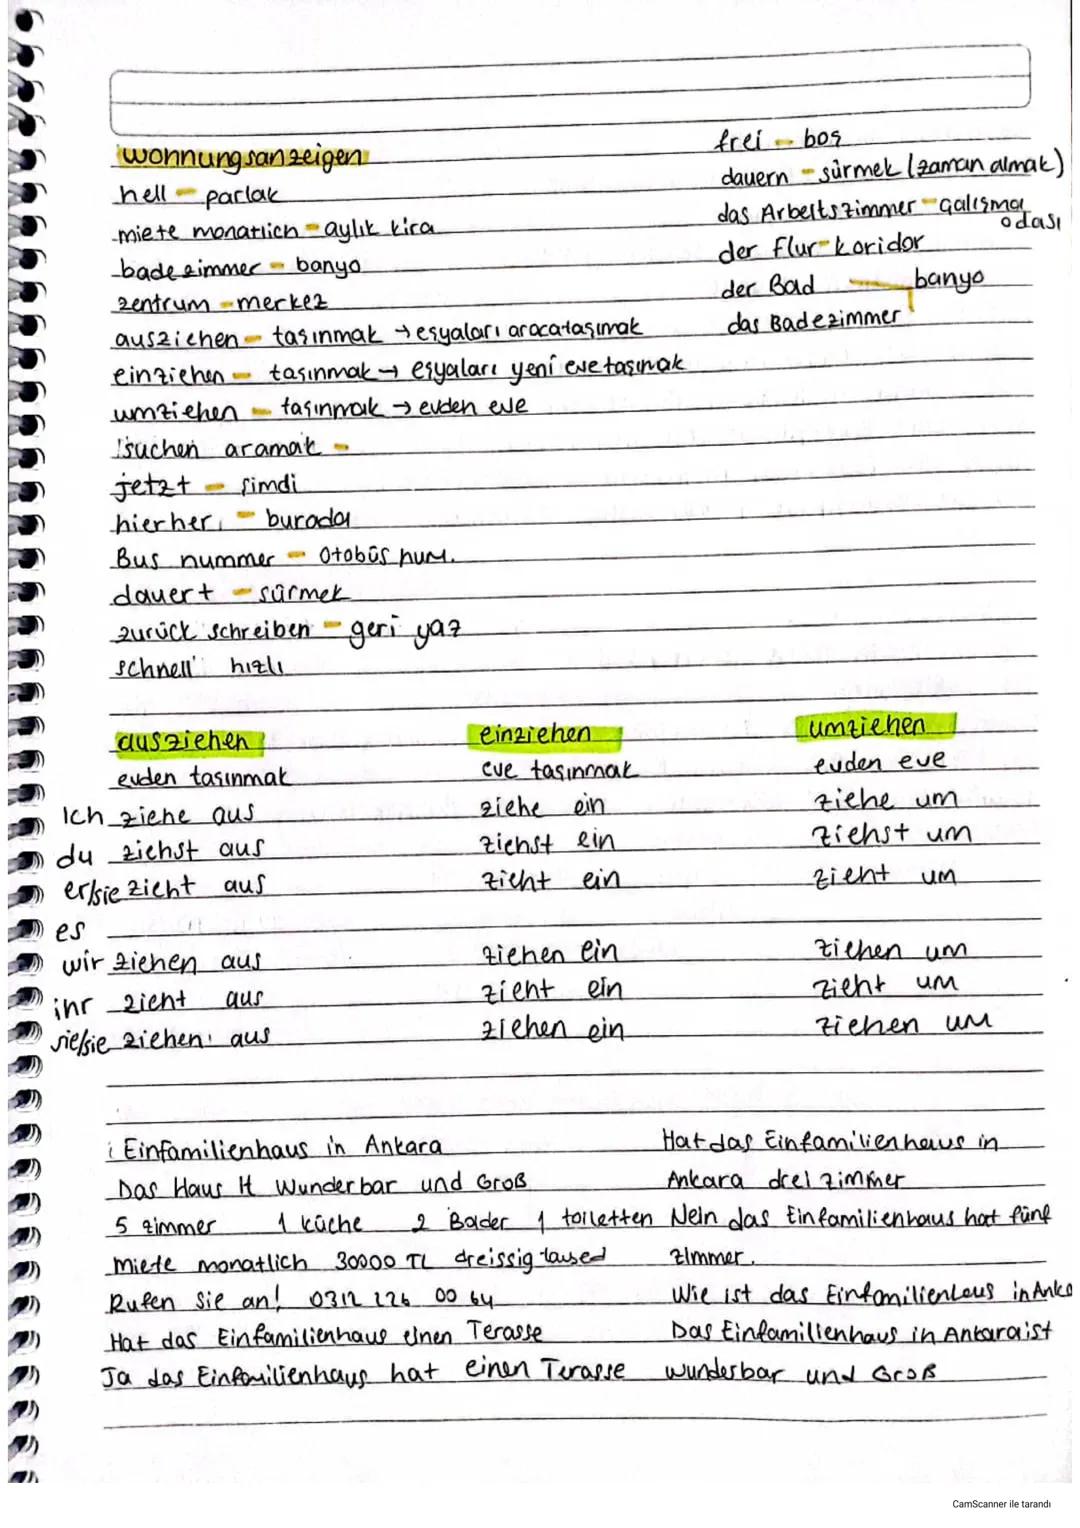 wohnungsanzeigen
hell - parlak
miete monatlich - aylık kira
badezimmer - banyo
zentrum - merkez
ausziehen - taşınmak → eşyaları araca taşımak
einziehen - taşınmak → eşyaları yeni eve taşımak
umziehen - taşınmak → evden eve
suchen aramak -
jetzt - şimdi
hierher - burada
Bus nummer - Otobüs num.
dauert - sürmek
zurück schreiben - geri yaz
schnell hızlı
frei - boş
dauern - sürmek (zaman almak)
das Arbeitszimmer - çalışma odası
der Flur - koridor
der Bad banyo
das Badezimmer
ausziehen einziehen umziehen
evden taşınmak eve taşınmak evden eve
Ich ziehe aus ziehe ein ziehe um
du ziehst aus ziehst ein ziehst um
er/sie zieht aus zieht ein zieht um
es
wir ziehen aus ziehen ein ziehen um
ihr zieht aus zieht ein zieht um
sie/sie ziehen aus ziehen ein ziehen um
Einfamilienhaus in Ankara
Das Haus It Wunderbar und Groß
5 zimmer 1 küche 2 Bader 1 toiletten
Miete monatlich 30000 TL dreissig taused
Rufen Sie an! 0312 226 00 64
Hat das Einfamilienhaus einen Terasse
Ja das Einfamilienhaus hat einen Terasse
Hat das Einfamilienhaus in
Ankara drei zimmer
Nein das Einfamilienhaus hat fünf
zimmer.
Wie ist das Einfamilienhaus in Anka
Das Einfamilienhaus in Ankara ist
wunderbar und Groß
CamScanner ile tarandı